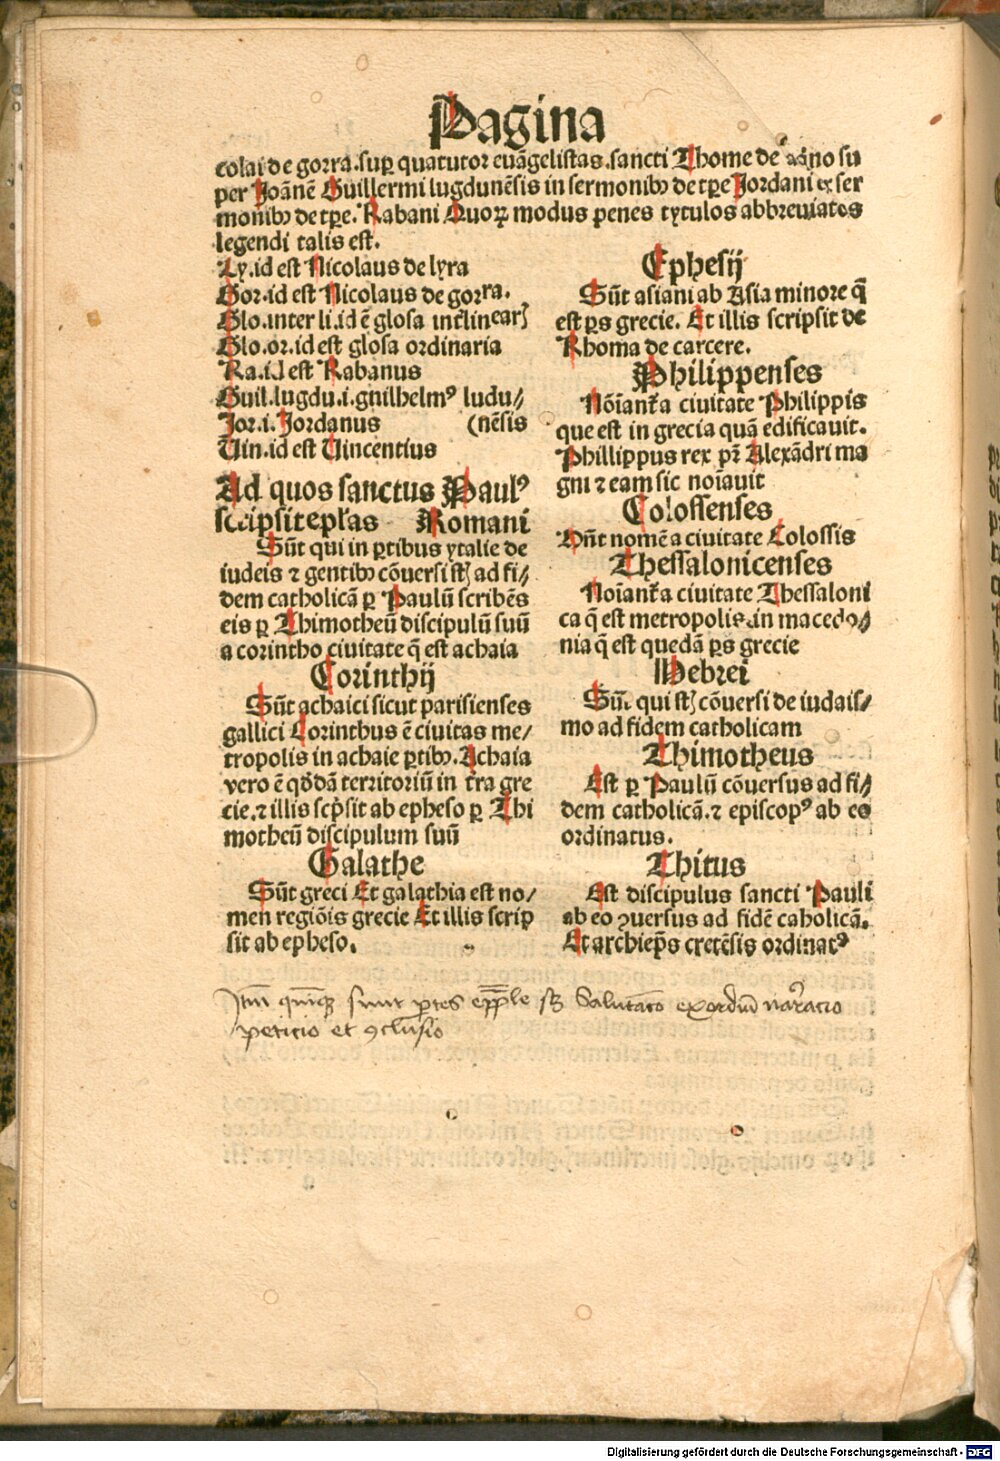 Pagina
colai de gorra.suꝑ quatutor euãgelistas.sancti Thome de aq̃no su
per Joãnẽ Guillermi lugdunẽsis in sermonibꝰ de tꝑe Jordani ex ser
monibꝰ de tꝑe. Rabani Quoꝝ modus penes tytulos abbreuiatos
legendi talis est.
Ly.id est Nicolaus de lyra
Gor.id est Nicolaus de gorra.
Glo.inter li.id ẽ glosa interlinearꝭ
Glo.or.id est glosa ordinaria
Ra.id est Rabanus
Guil.lugdu.i.guilhelmꝰ ludu⸗
Jor.i.Jordanus (nẽsis
Vin.id est Vincentius
Ad quos sanctus Paulꝰ
scripsit epl̃as Romani
Sũt qui in ꝑtibus ytalie de
iudeis ⁊ gentibꝰ cõuersi st̃ ad fi⸗
dem catholicã ꝑ Paulũ scribẽs
eis ꝑ Thimotheũ discipulũ suũ
a corintho ciuitate q̃ est achaia
Corinthij
Sũt achaici sicut parisienses
gallici Corinthus ẽ ciuitas me⸗
tropolis in achaie ꝑtibꝰ. Achaia
vero ẽ qddã territoriũ in tr̃a gre
cie.⁊ illis scp̃sit ab epheso ꝑ Thi
motheũ discipulum suũ
Galathe
Sũt greci Et galathia est no⸗
men regiõis grecie Et illis scrip
sit ab epheso.
Ephesij
Sũt asiani ab Asia minore q̃
est ꝑs grecie. Et illis scripsit de
Rhoma de carcere.
Philippenses
Nõiant᷑ a ciuitate Philippis
que est in grecia quã edificauit.
Phillippus rex pr̃ Alexãdri ma
gni ⁊ eam sic noĩauit
Colossenses
Dñt nomẽ a ciuitate Colossis
Thessalonicenses
Noĩant᷑ a ciuitate Thessaloni
ca q̃ est metropolis.in macedo⸗
nia q̃ est quedã ꝑs grecie
Hebrei
Sũt qui st̃ cõuersi de iudais⸗
mo ad fidem catholicam
Thimotheus
Est ꝑ Paulũ cõuersus ad fi⸗
dem catholicã.⁊ episcopꝰ ab eo
ordinatus.
Thitus
Est discipulus sancti Pauli
ab eo ꝯuersus ad fidẽ caholicã.
Et archiep̃s cretẽsis ordinatꝰ
Itm̃ quinqꝫ sunt ꝑtes epp̃le sꝫ Salutatõ exordiũ narracio
peticio et ꝯclusio
Digitalisierung gefördert durch die Deutsche Forschungsgemeinschaft - DFG